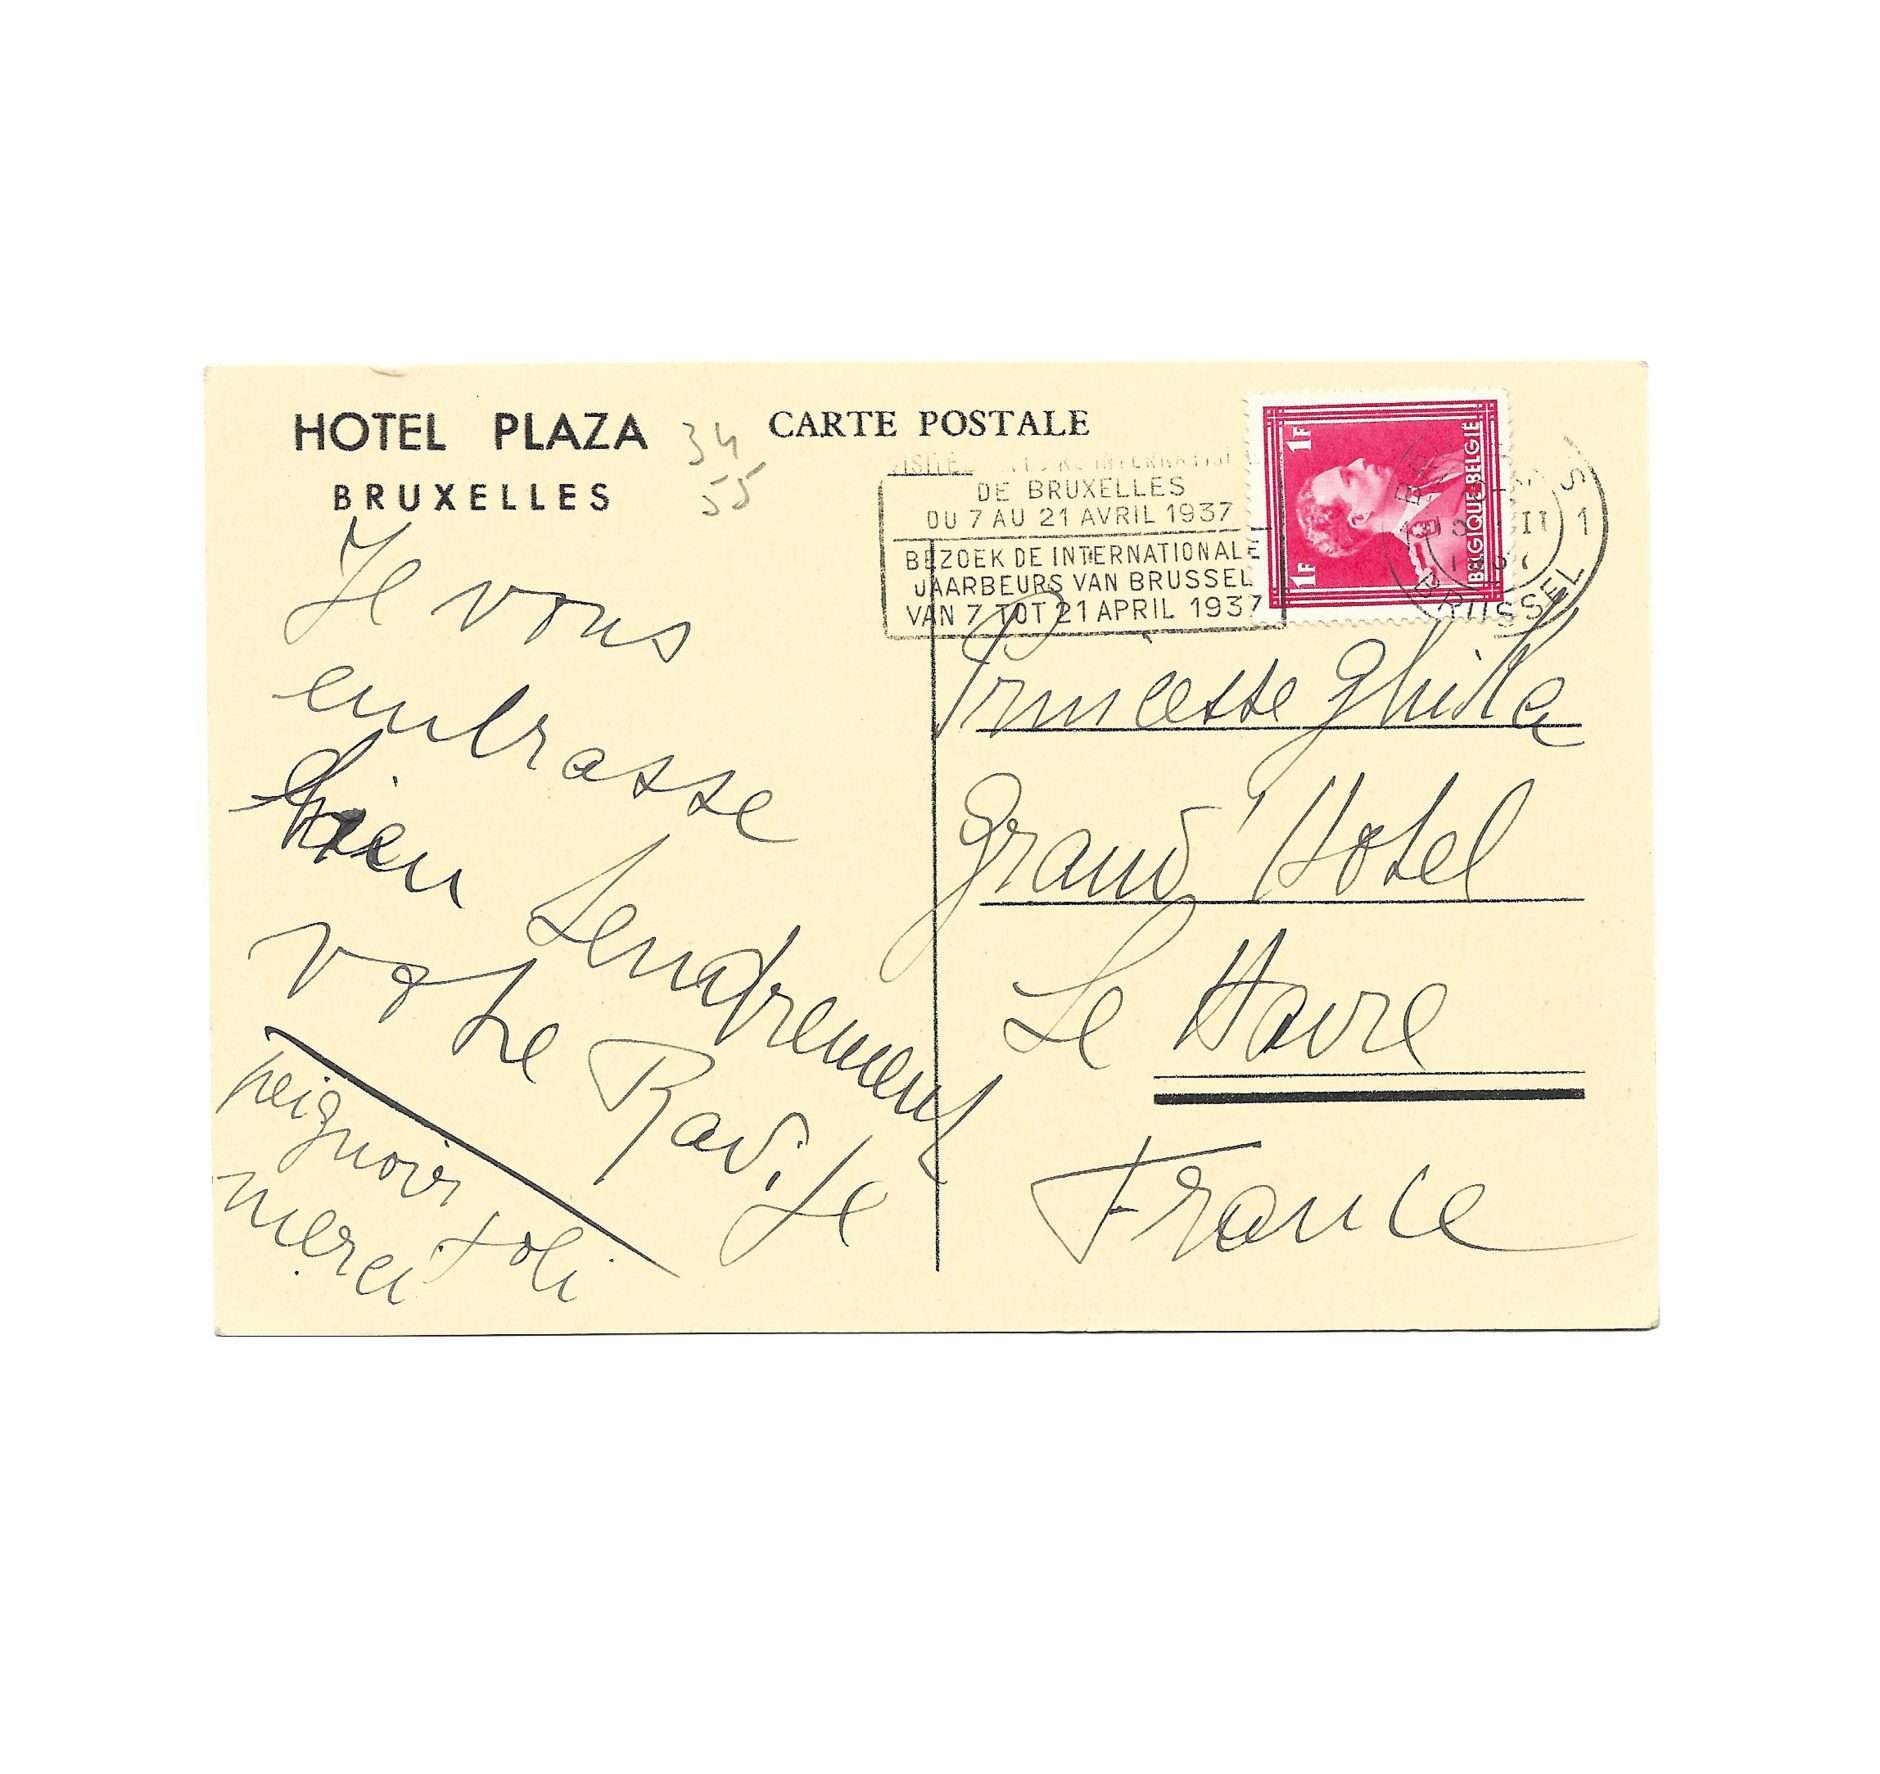 HOTEL PLAZA
BRUXELLES
34
55
CARTE POSTALE
DE BRUXELLES
DU 7 AU 21 AVRIL 1937
BEZOEK DE INTERNATIONALE
JAARBEURS VAN BRUSSEL
VAN 7 TOT 21 APRIL 1937
1F
1F
BELGIQUE·BELGIE
BRUSSEL
1
Je vous
embrasse
bien tendrement
votre
peignoir
merci joli
Princesse Ghika
Grand Hotel
Le Havre
France